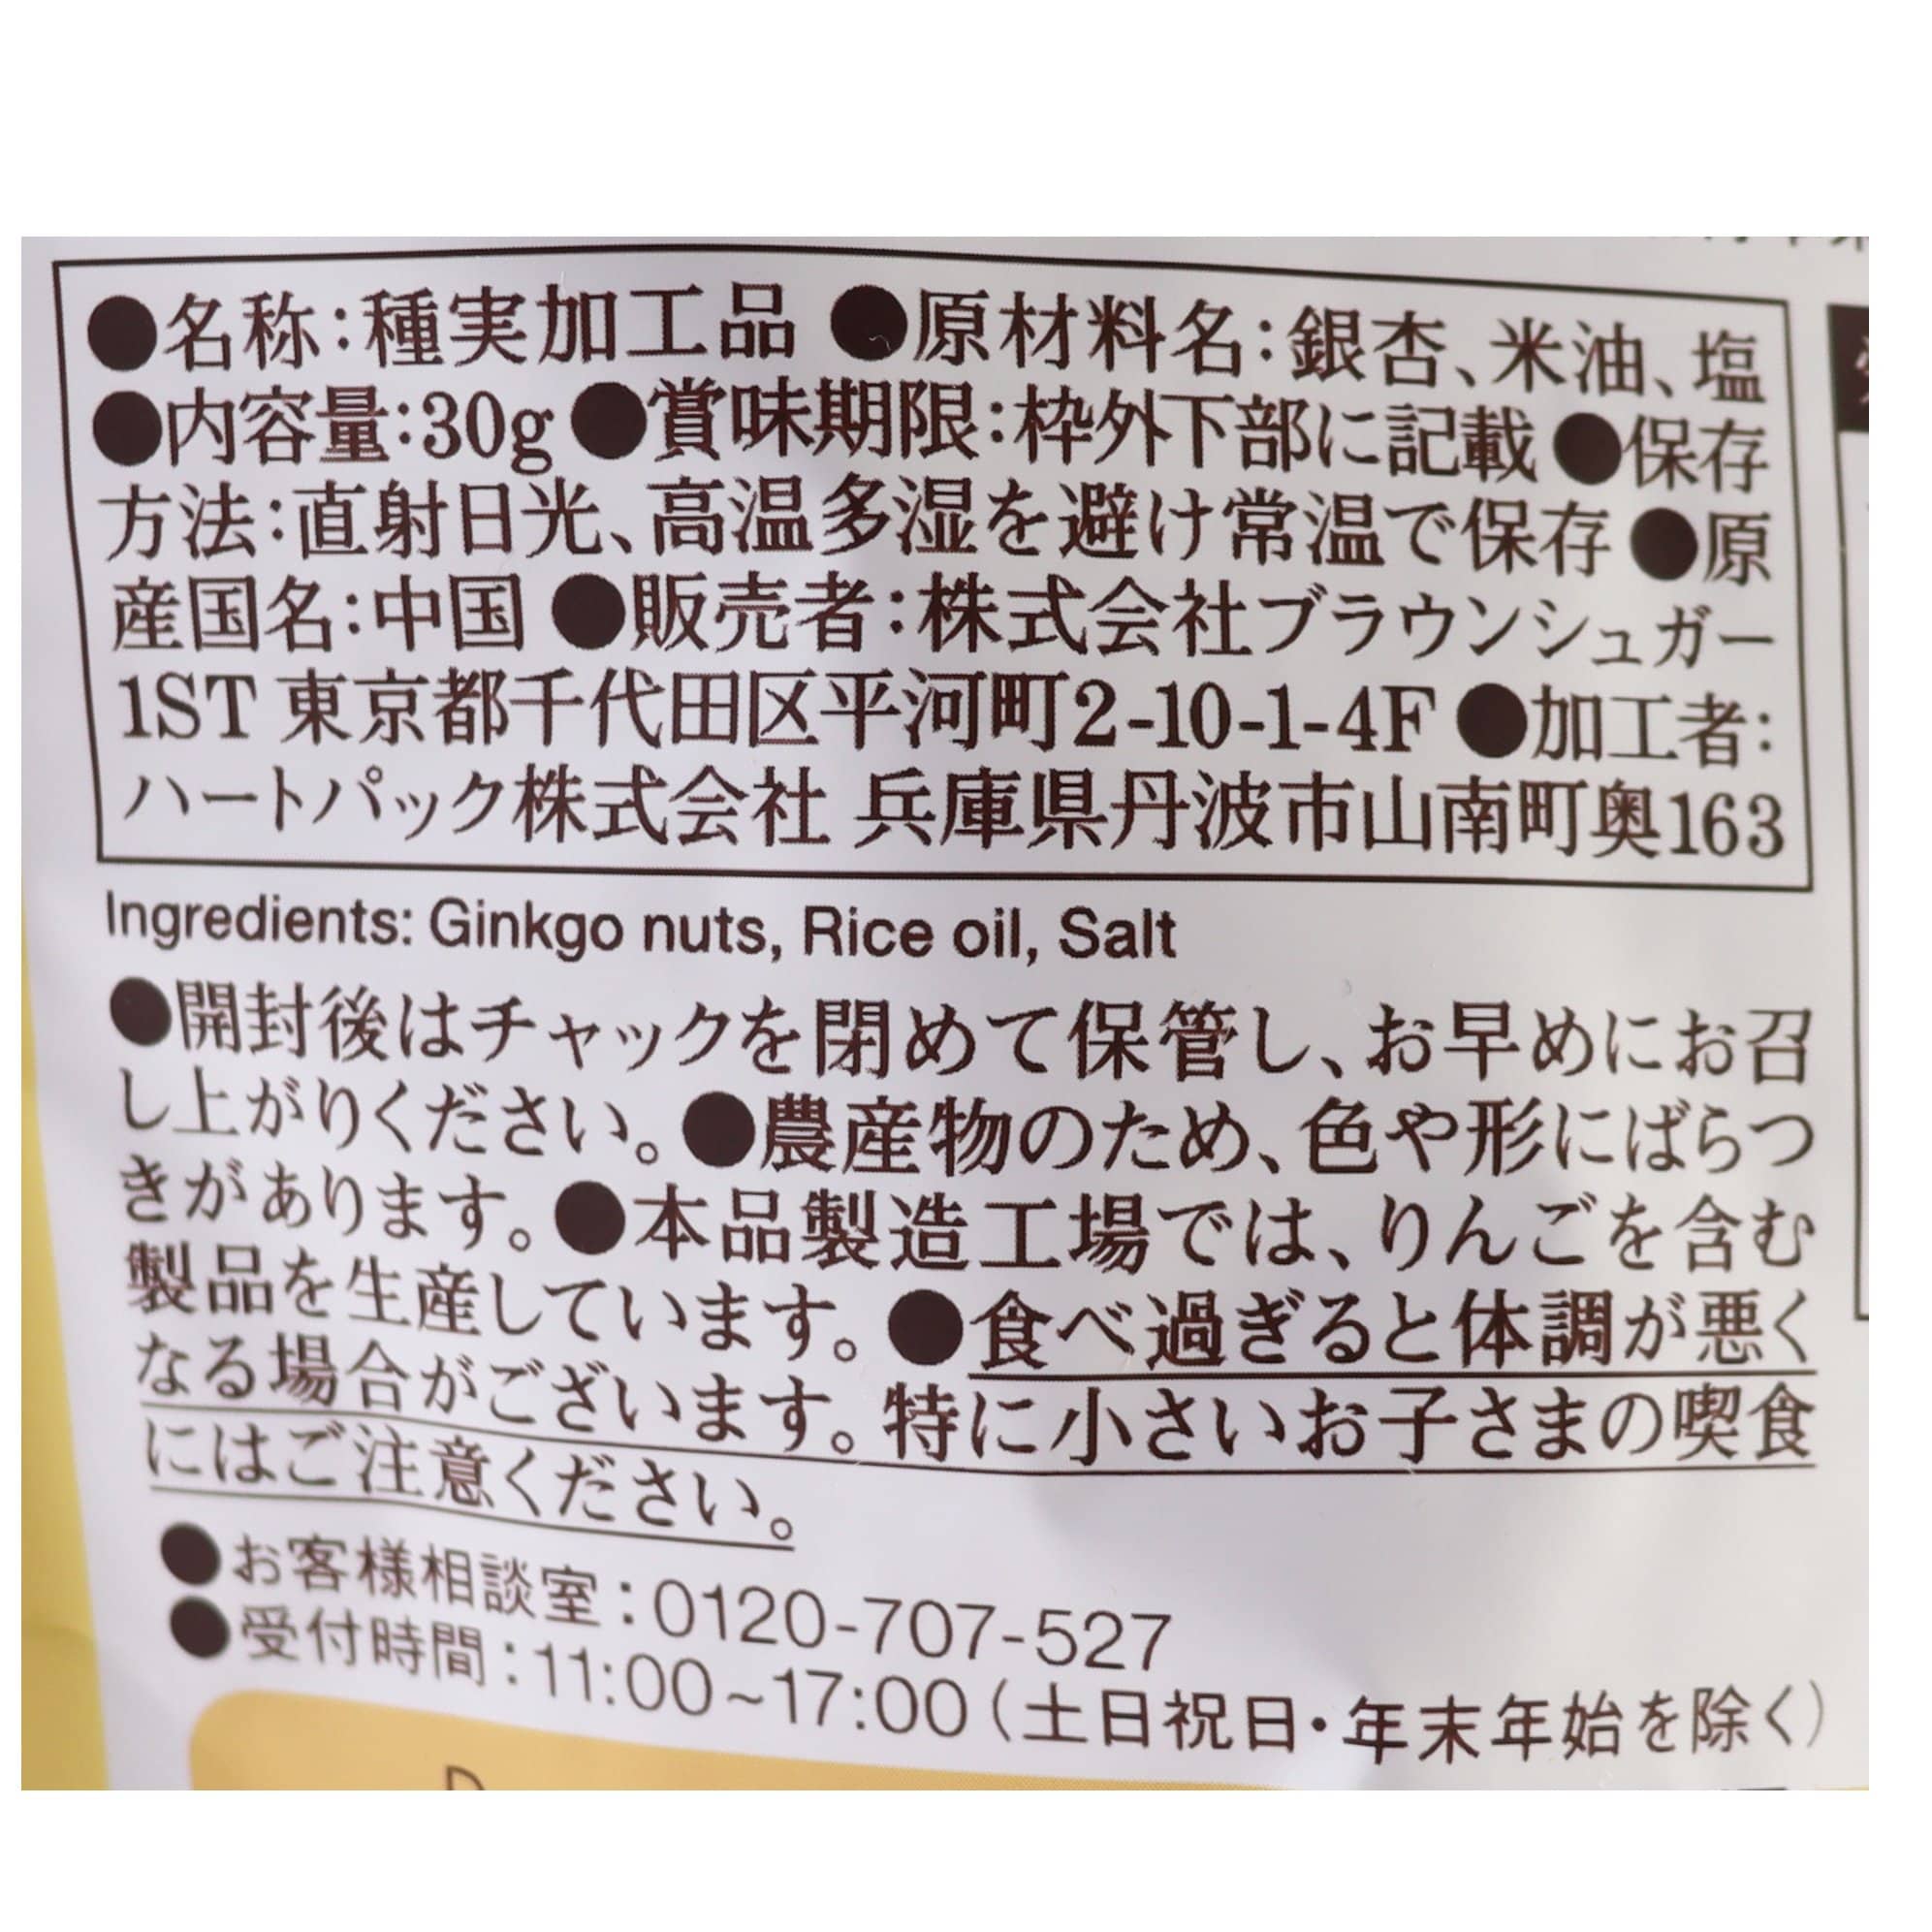 ●名称:種実加工品 ●原材料名:銀杏、米油、塩
●内容量:30g ●賞味期限:枠外下部に記載 ●保存
方法:直射日光、高温多湿を避け常温で保存 ●原
産国名:中国 ●販売者:株式会社ブラウンシュガー
1ST 東京都千代田区平河町2-10-1-4F ●加工者:
ハートパック株式会社 兵庫県丹波市山南町奥163
Ingredients: Ginkgo nuts, Rice oil, Salt
●開封後はチャックを閉めて保管し、お早めにお召
し上がりください。●農産物のため、色や形にばらつ
きがあります。●本品製造工場では、りんごを含む
製品を生産しています。●食べ過ぎると体調が悪く
なる場合がございます。特に小さいお子さまの喫食
にはご注意ください。
●お客様相談室:0120-707-527
●受付時間:11:00~17:00(土日祝日・年末年始を除く)